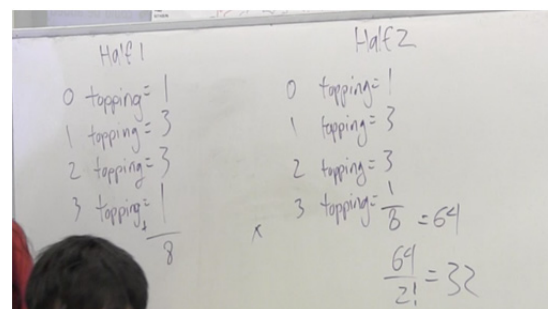 Half 1
0 topping = 1
1 topping = 3
2 topping = 3
3 topping = 1
8
x
Half 2
0 topping = 1
1 topping = 3
2 topping = 3
3 topping = 1
8 = 64
64
2! = 32